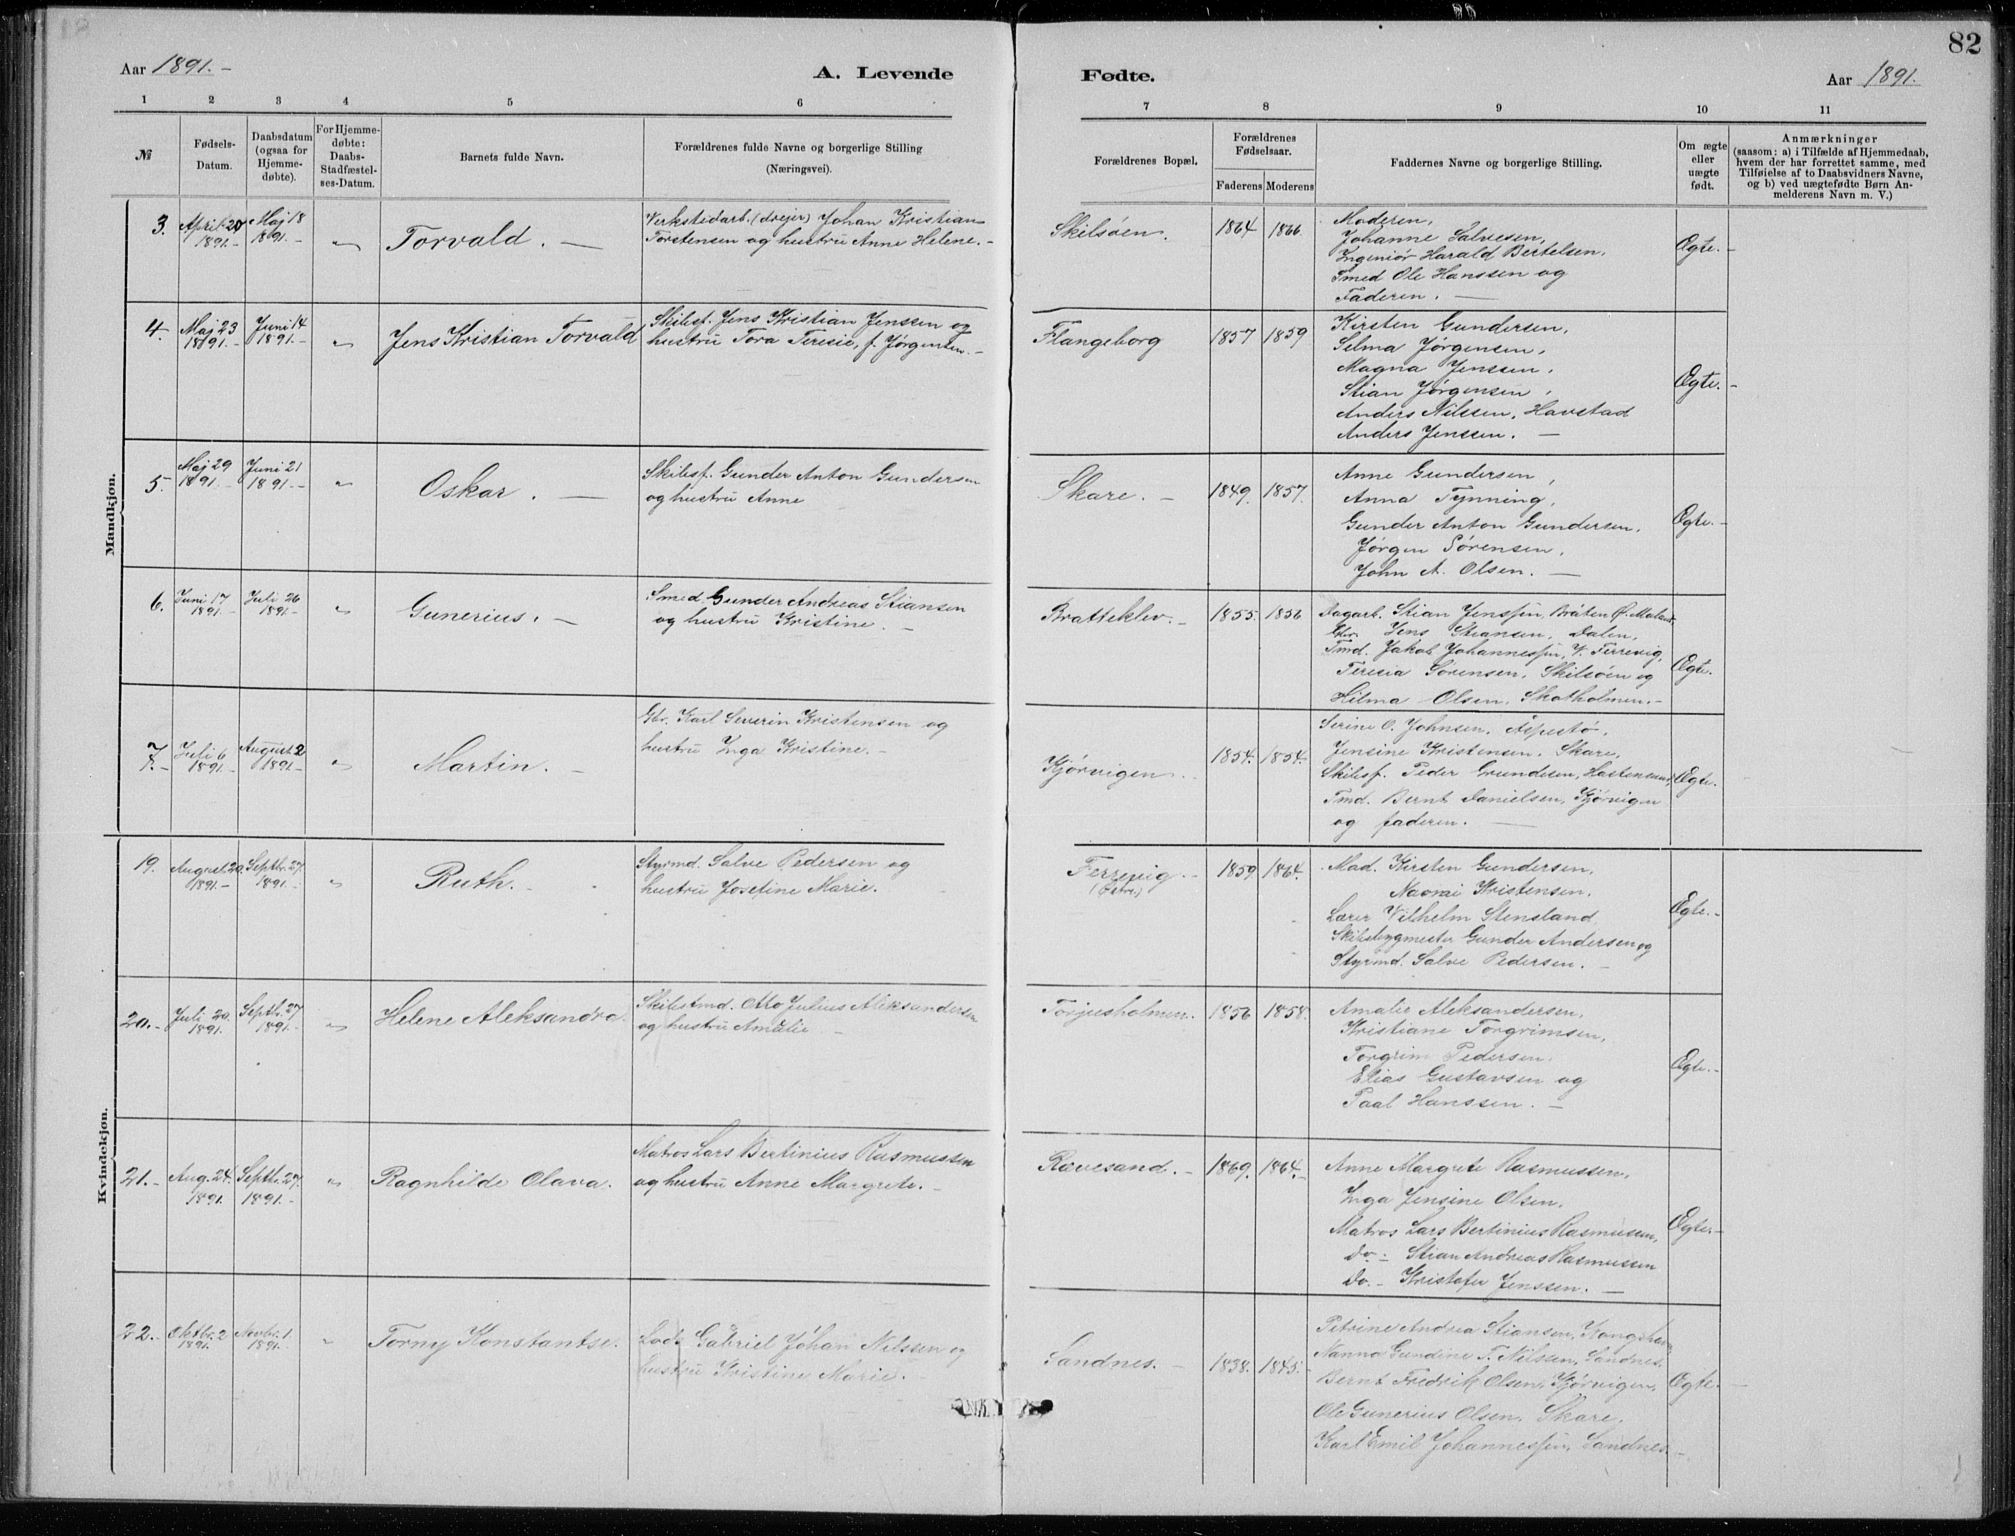 82
Aar 1891.-
A. Levende
Fødte.
Aar 1891.
1 2 3 4 5 6 7 8 9 10 11
№
Fødsels-
Datum.
Daabsdatum
(ogsaa for
Hjemme-
døbte).
For Hjemme-
døbte:
Daabs-
Stadfæstel-
ses-Datum.
Barnets fulde Navn.
Forældrenes fulde Navne og borgerlige Stilling
(Næringsvei).
Forældrenes Bopæl.
Forældrenes
Fødselsaar.
Faderens Moderens
Faddernes Navne og borgerlige Stilling.
Om ægte
eller
uægte
født.
Anmærkninger
(saasom: a) i Tilfælde af Hjemmedaab,
hvem der har forrettet samme, med
Tilføielse af to Daabsvidners Navne,
og b) ved uægtefødte Børn An-
melderens Navn m. V.)
Mandkjøn.
3. April 20 1891.- Maj 18 1891.- " Torvald. —
Verkstedarb. (drejer) Johan Kristian
Torstensen og hustru Anne Helene.-
Skilsøen. 1864 1866
Moderen,
Johanne Salvesen,
Ingeniør Harald Bertelsen,
Smed Ole Hanssen og
Faderen. —
Ægte.-
4. Maj 23 1891.- Juni 14 1891.- " Jens Kristian Torvald
Skibsf. Jens Kristian Jenssen og
hustru Tora Teresie, f. Jørgensen.-
Flangeborg 1857 1859
Kirsten Gundersen,
Selma Jørgensen,
Magna Jenssen,
Stian Jørgensen,
Anders Nilssen, Havstad
Anders Jenssen. —
Ægte.-
5. Maj 29 1891.- Juni 21 1891.- " Oskar. —
Skibsf. Gunder Anton Gundersen
og hustru Anne
Skare.- 1849. 1857.
Anne Gundersen,
Anna Tynning,
Gunder Anton Gundersen.
Jørgen Sørensen,
John A. Olsen. —
Ægte.-
6. Juni 17 1891.- Juli 26 1891.- " Gunerius. —
Smed Gunder Andreas Stiansen
og hustru Kristine. -
Bratteklev.- 1855. 1856
Dagarb. Stian Jenssen, Bråten
Gbr. Jens Stiansen, Dalen,
Tmd. Jakob Johannessen, V. Ferrevig,
Teresia Sørensen, Skilsøen og
Hilma Olsen, Skotholmen.-
Ægte.
7.- Juli 6 1891.- August 2 1891.- " Martin. -
Gbr. Karl Severin Kristensen og
hustru Inga Kristine.-
Kjørvigen. 1854. 1854.
Serine O. Johnsen,
Jensine Kristensen, Skare,
Skibsf. Peder Gundersen, Hastensund,
Tmd. Bernt Danielsen, Kjørvigen
og faderen. —
Ægte.
Kvindekjøn.
19. August 20. 1891.- Septbr. 27. 1891.- " Ruth.-
Styrmd. Salve Pedersen og
hustru Josefine Marie.
Ferrevig.- (Østre) 1859 1864.
Mad. Kirsten Gundersen,
Kristensen.
Lærer Vilhelm Stensland
Skibsbygmester Gunder Andersen og
Styrmd. Salve Pedersen. -
Ægte.-
20.- Juli 20. 1891.- Septbr. 27 1891.- " Helene Aleksandra.
Skibstmd. Otto Julius Aleksandersen
og hustru Amalie -
Torjusholmen. 1856 1858.
Amalie Aleksandersen,
Kristiane Torgrimsen,
Torgrim Pedersen,
Elias Gustavsen og
Paal Hanssen. —
Ægte.-
21.- Aug. 24. 1891. Septbr. 27. 1891. " Ragnhilde Olava.
Matros Lars Bertinius Rasmussen
og hustru Anne Margrete.-
Rævesand.- 1869. 1864.-
Anne Margrete Rasmussen,
Inga Jensine Olsen,
Matros Lars Bertinius Rasmussen,
Do.- Stian Andreas Rasmussen
Do.- Kristofer Jenssen. —
Ægte.-
22.- Oktbr. 2 1891. Novbr. 1. 1891. " Torny Konstantse.
Lods Gabriel Johan Nilssen og
hustru Kristine Marie.-
Sandnes.- 1838. 1845.
Petrine Andrea Stiansen,
Nanna Gundine T. Nilssen, Sandnes.
Bernt Fredrik Olsen, Kjørvigen,
Ole Gunerius Olsen, Skare,
Karl Emil Johannessen, Sandnes.-
Ægte.-